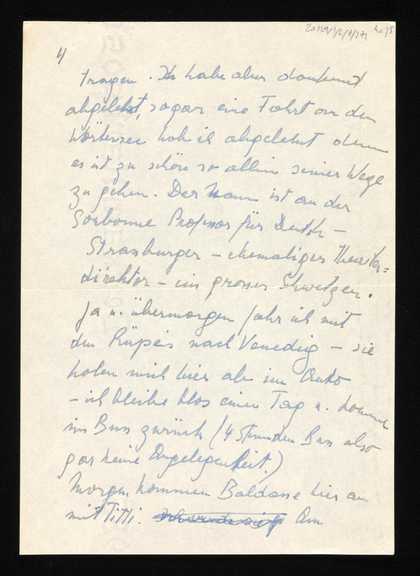 4
tragen. Ich habe aber dankend
abgelehnt, sogar eine Fahrt an den
Wörtersee hab ich abgelehnt denn
es ist zu schön so allein seiner Wege
zu gehen. Der Mann ist an der
Sorbonne Professor für Deutsch –
Strasburger – ehemaliger Theater=
direktor – ein grosser Schwätzer.
Ja u. übermorgen fahr ich mit
den Rüpeis nach Venedig – sie
holen mich hier ab im Auto
– ich bleibe blos einen Tag u. komme
im Bus zurück (4 Stunden Bus also
gar keine Angelegenheit.)
Morgen kommen Baldass hier an
mit Titti. Am